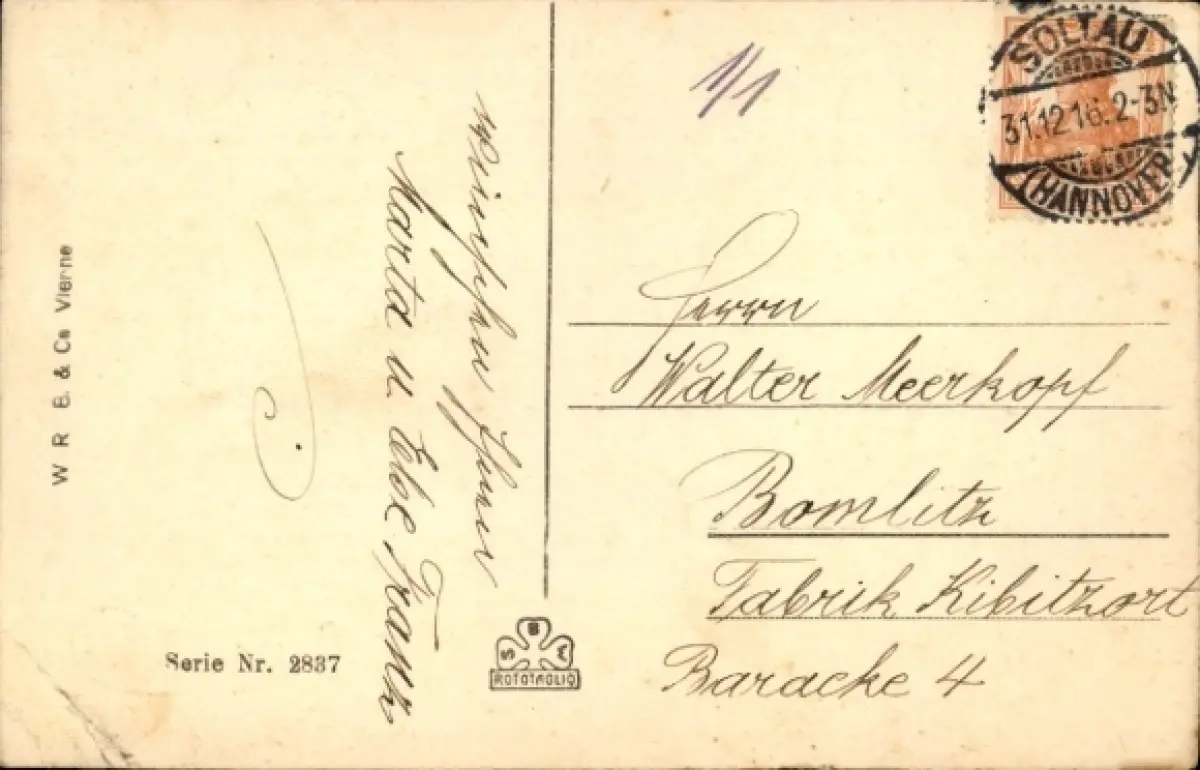 1/1
SOLTAU
31.12.16. 2-3N
(HANNOVER)
Herrn
Walter Meerkopf
Bomlitz
Fabrik Kibitzort
Baracke 4
wünschen Ihnen
Marta u.
W R B & Co Vienne
Serie Nr. 2837
S B W
ROTOTAGLIO